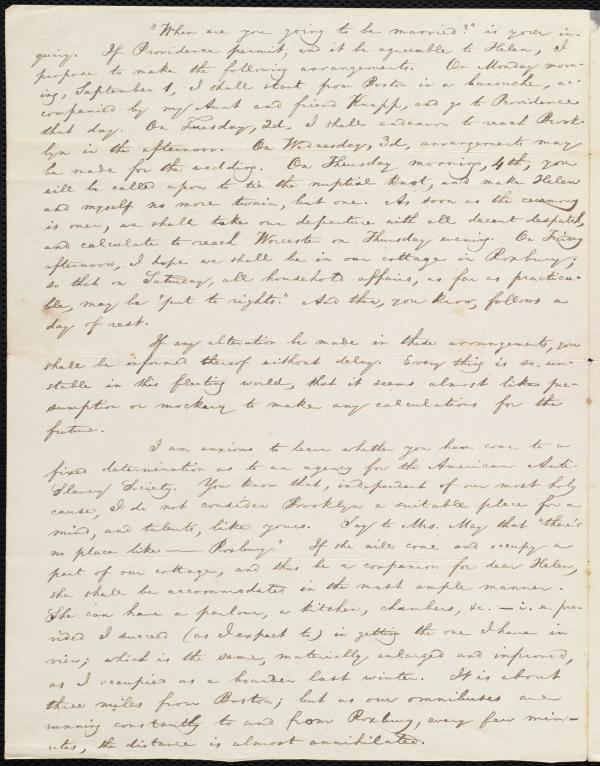 "When are you going to be married?" is your in-
quiry. If Providence permit, and it be agreeable to Helen, I
propose to make the following arrangements. On Monday morn-
ing, September 1, I shall start from Boston in a barouche, ac-
companied by my Aunt and friend Knapp, and go to Providence
that day. On Tuesday, 2d, I shall endeavor to reach Brook-
lyn in the afternoon. On Wednesday, 3d, arrangements may
be made for the wedding. On Thursday morning, 4th, you
will be called upon to tie the nuptial knot, and make Helen
and myself no more twain, but one. As soon as the ceremony
is over, we shall take our departure with all decent despatch,
and calculate to reach Worcester on Thursday evening. On Friday
afternoon, I hope we shall be in our cottage in Roxbury;
so that on Saturday, all household affairs, as far as practica-
ble, may be "put to rights." And then, you know, follows a
day of rest.
If any alteration be made in these arrangements, you
shall be informed thereof without delay. Every thing is so un-
stable in this fleeting world, that it seems almost like pre-
sumption or mockery to make any calculations for the
future.
I am anxious to learn whether you have come to a
fixed determination as to an agency for the American Anti-
Slavery Society. You know that, independent of our most holy
cause, I do not consider Brooklyn a suitable place for a
mind, and talents, like yours. Say to Mrs. May that "there's
no place like — Roxbury." If she will come and occupy a
part of our cottage, and thus be a companion for dear Helen,
she shall be accommodated in the most ample manner.
She can have a parlour, a kitchen, chambers, &c. — i. e. pro-
vided I succeed (as I expect to) in getting the one I have in
view; which is the same, materially enlarged and improved,
as I occupied as a boarder last winter. It is about
three miles from Boston; but as our omnibuses are
running constantly to and from Roxbury, every few min-
utes, the distance is almost annihilated.